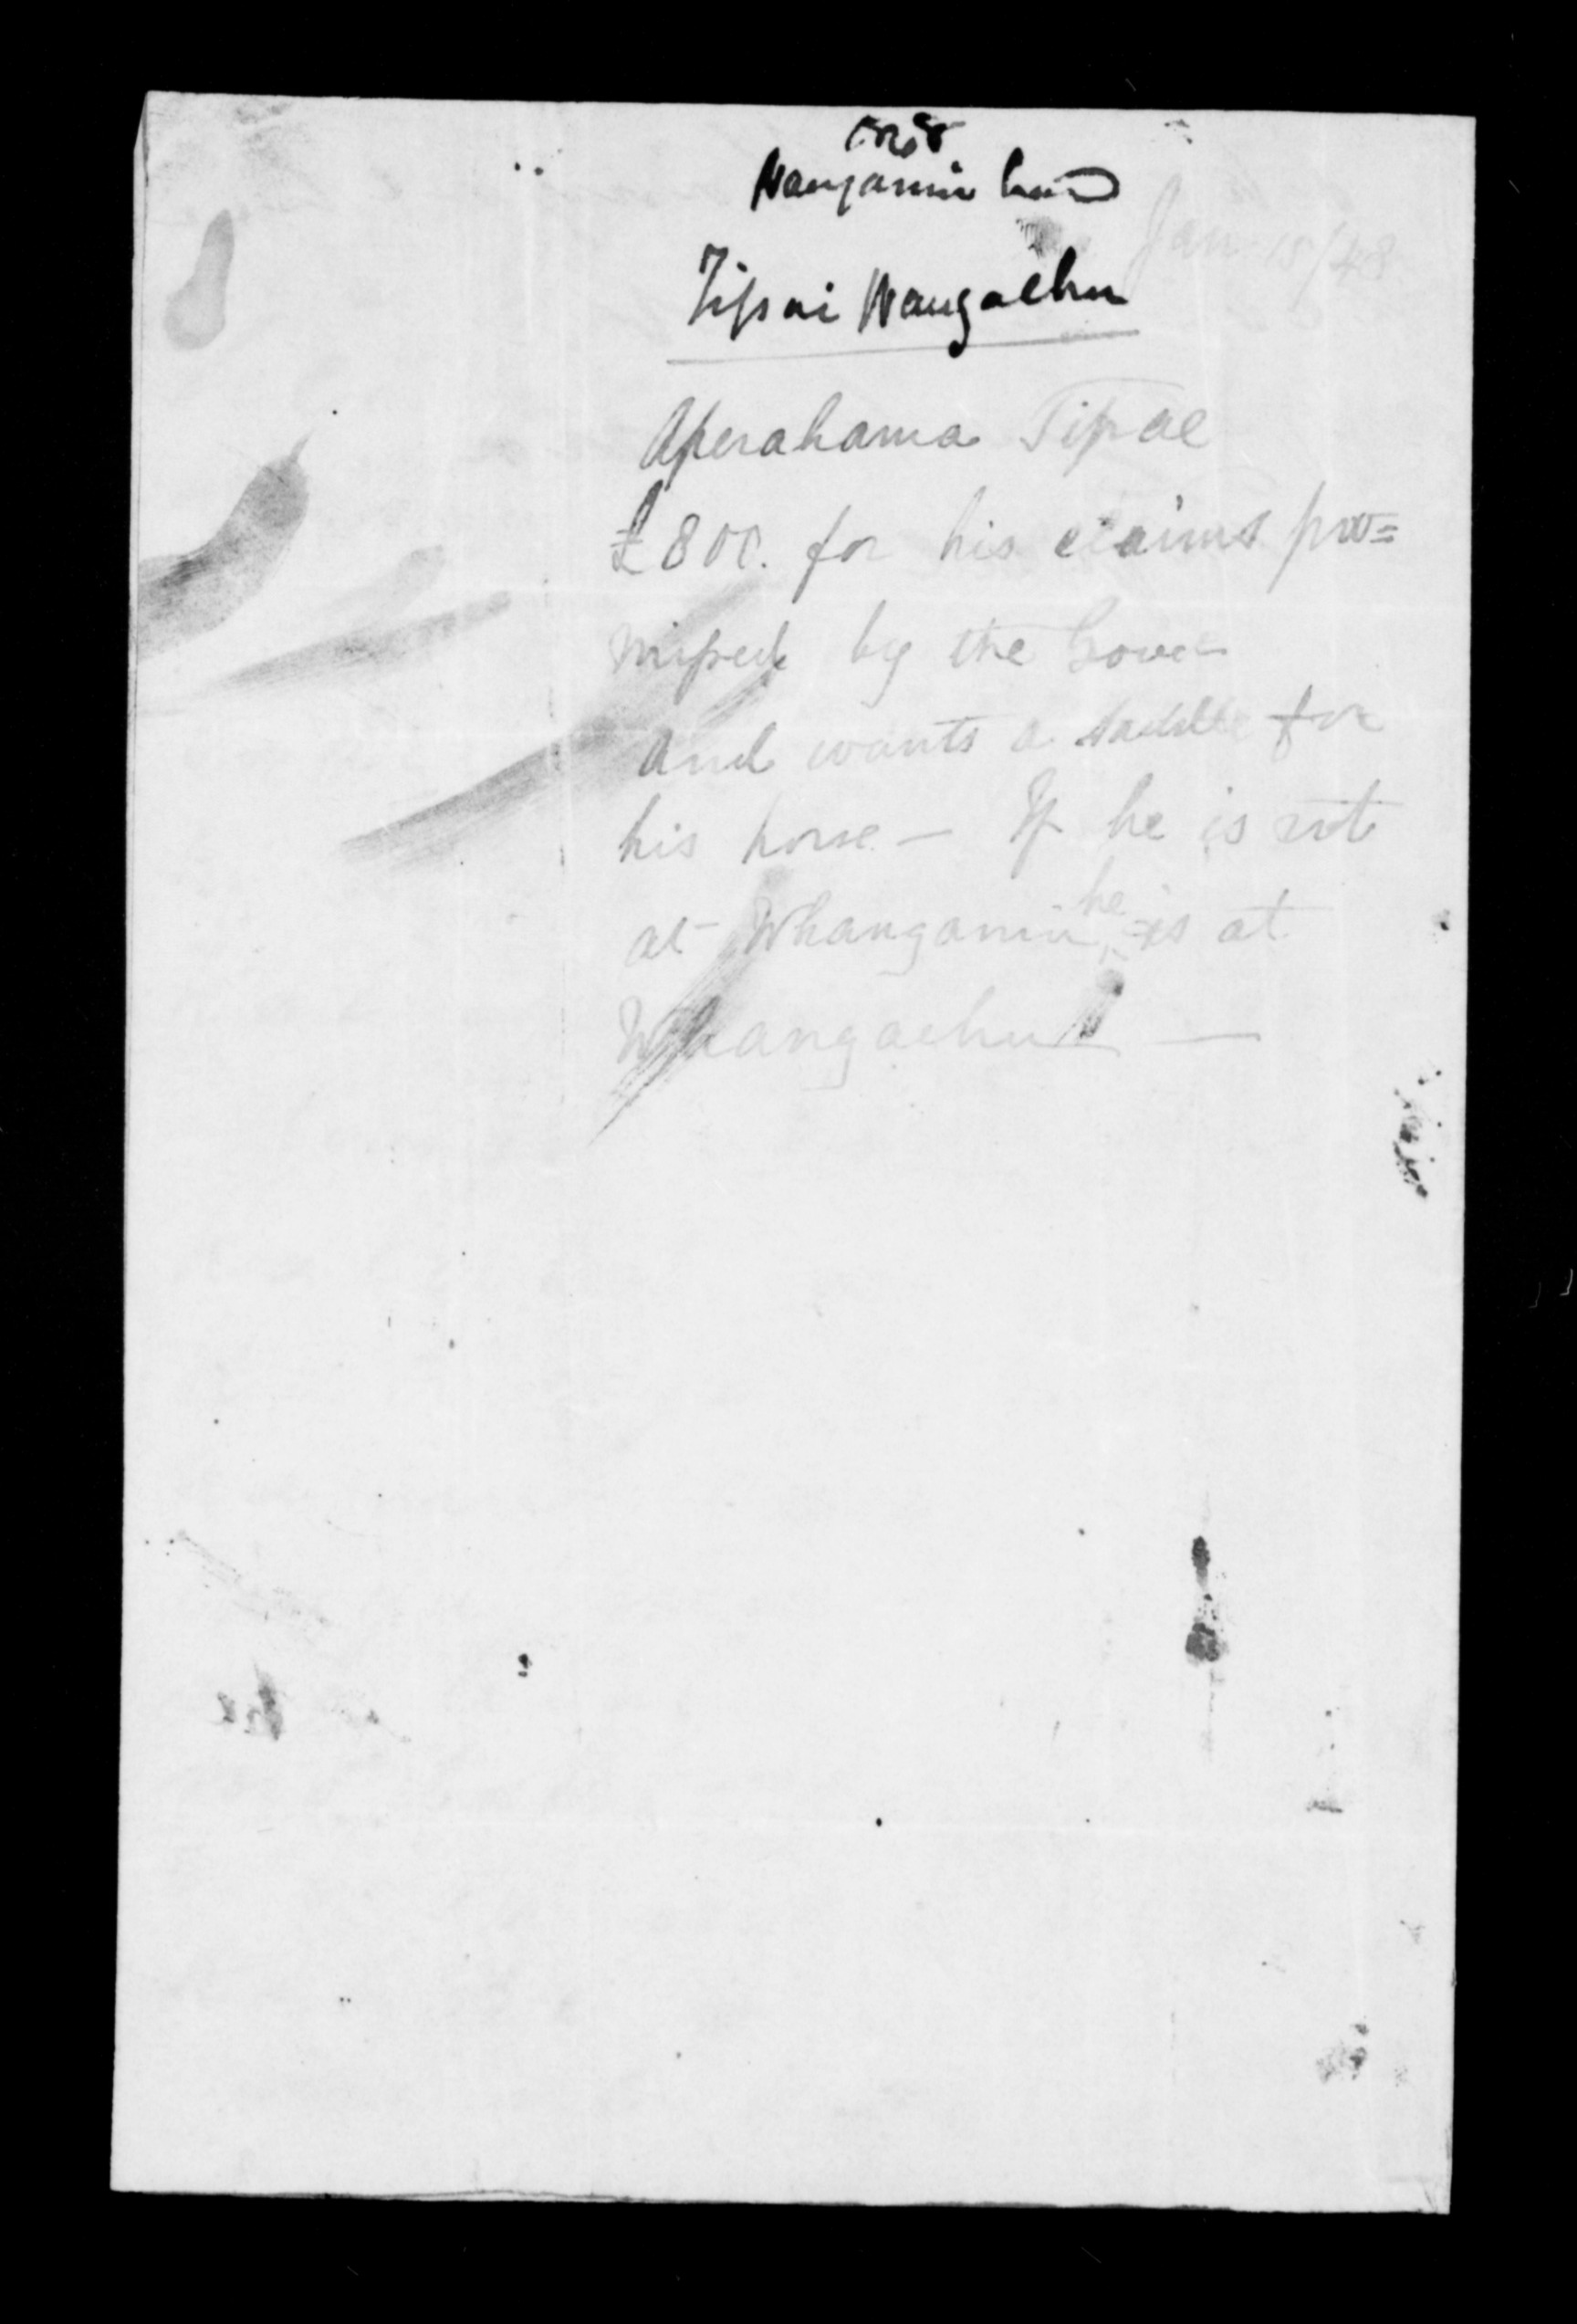 Wanganui Land
Jan 15/48
Tipai Wangaehu
Aperahama Tipae
£800. for his claims pro=
mised by the Gover=
and wants a saddle for
his horse — If he is not
at Whanganui he is at
Whangaehu —